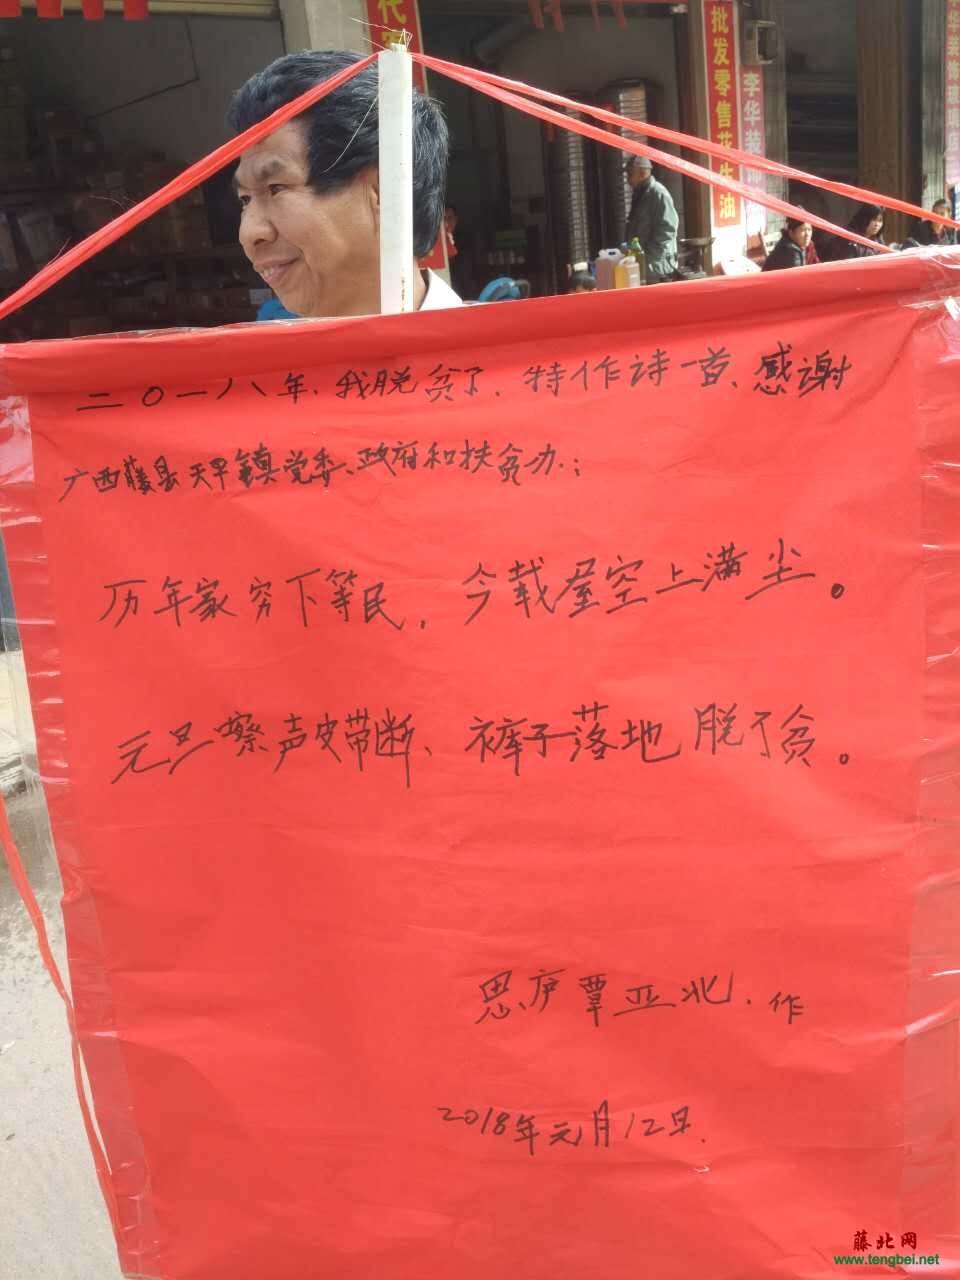 代
批发零售花生油
李华装饰
华装饰玻璃店
二〇一八年、我脱贫了，特作诗一首、感谢
广西藤县天平镇党委、政府和扶贫办；
历年家穷下等民，今载屋空上满尘。
元旦嚓声皮带断、裤子落地脱了贫。
思庐覃亚北．作
2018年元月12日．
藤北网
www.tengbei.net